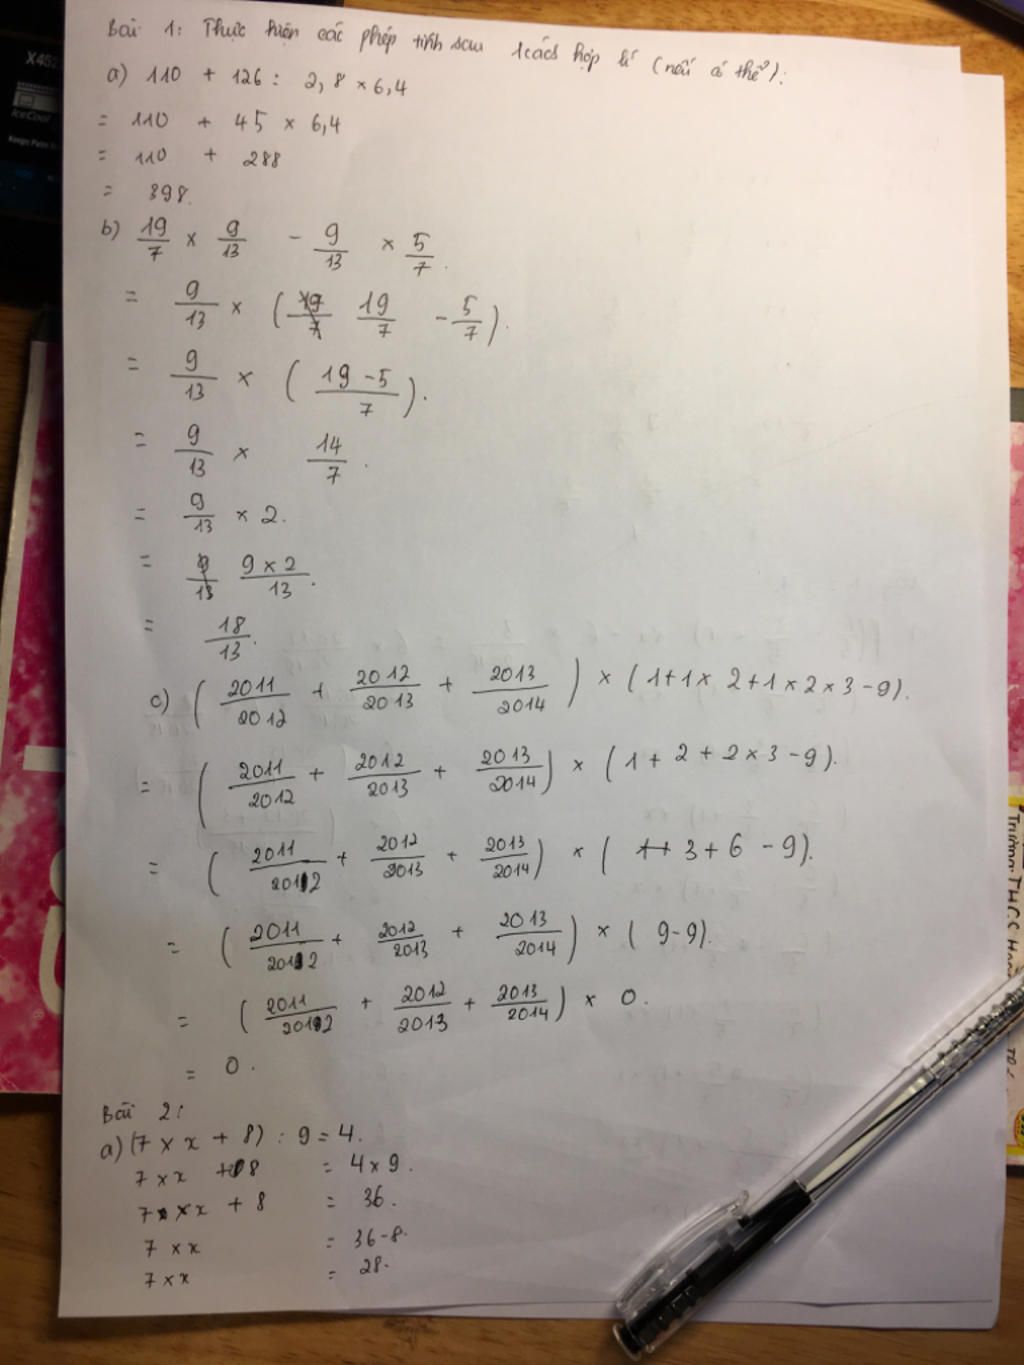 X45
IceCool
Bài 1: Thực hiện các phép tính sau 1 cách hợp lí (nếu có thể):
a) 110 + 126 : 2,8 × 6,4
= 110 + 45 × 6,4
= 110 + 288
= 398.
b) 19/7 × 9/13 - 9/13 × 5/7.
= 9/13 × ( 19/7 - 5/7 ).
= 9/13 × ( 19-5/7 ).
= 9/13 × 14/7.
= 9/13 × 2.
= 9×2/13.
= 18/13.
c) ( 2011/2012 + 2012/2013 + 2013/2014 ) × (1+1× 2+1×2×3-9).
= ( 2011/2012 + 2012/2013 + 2013/2014 ) × (1 + 2 + 2×3-9).
= ( 2011/2012 + 2012/2013 + 2013/2014 ) × ( 3+6 -9).
= ( 2011/2012 + 2012/2013 + 2013/2014 ) × ( 9-9).
= ( 2011/2012 + 2012/2013 + 2013/2014 ) × 0.
= 0.
Bài 2:
a) (7 × x + 8) : 9 = 4.
7 × x + 8 = 4×9.
7 × x + 8 = 36.
7 × x = 36-8.
7 × x = 28.
Trường: THCS